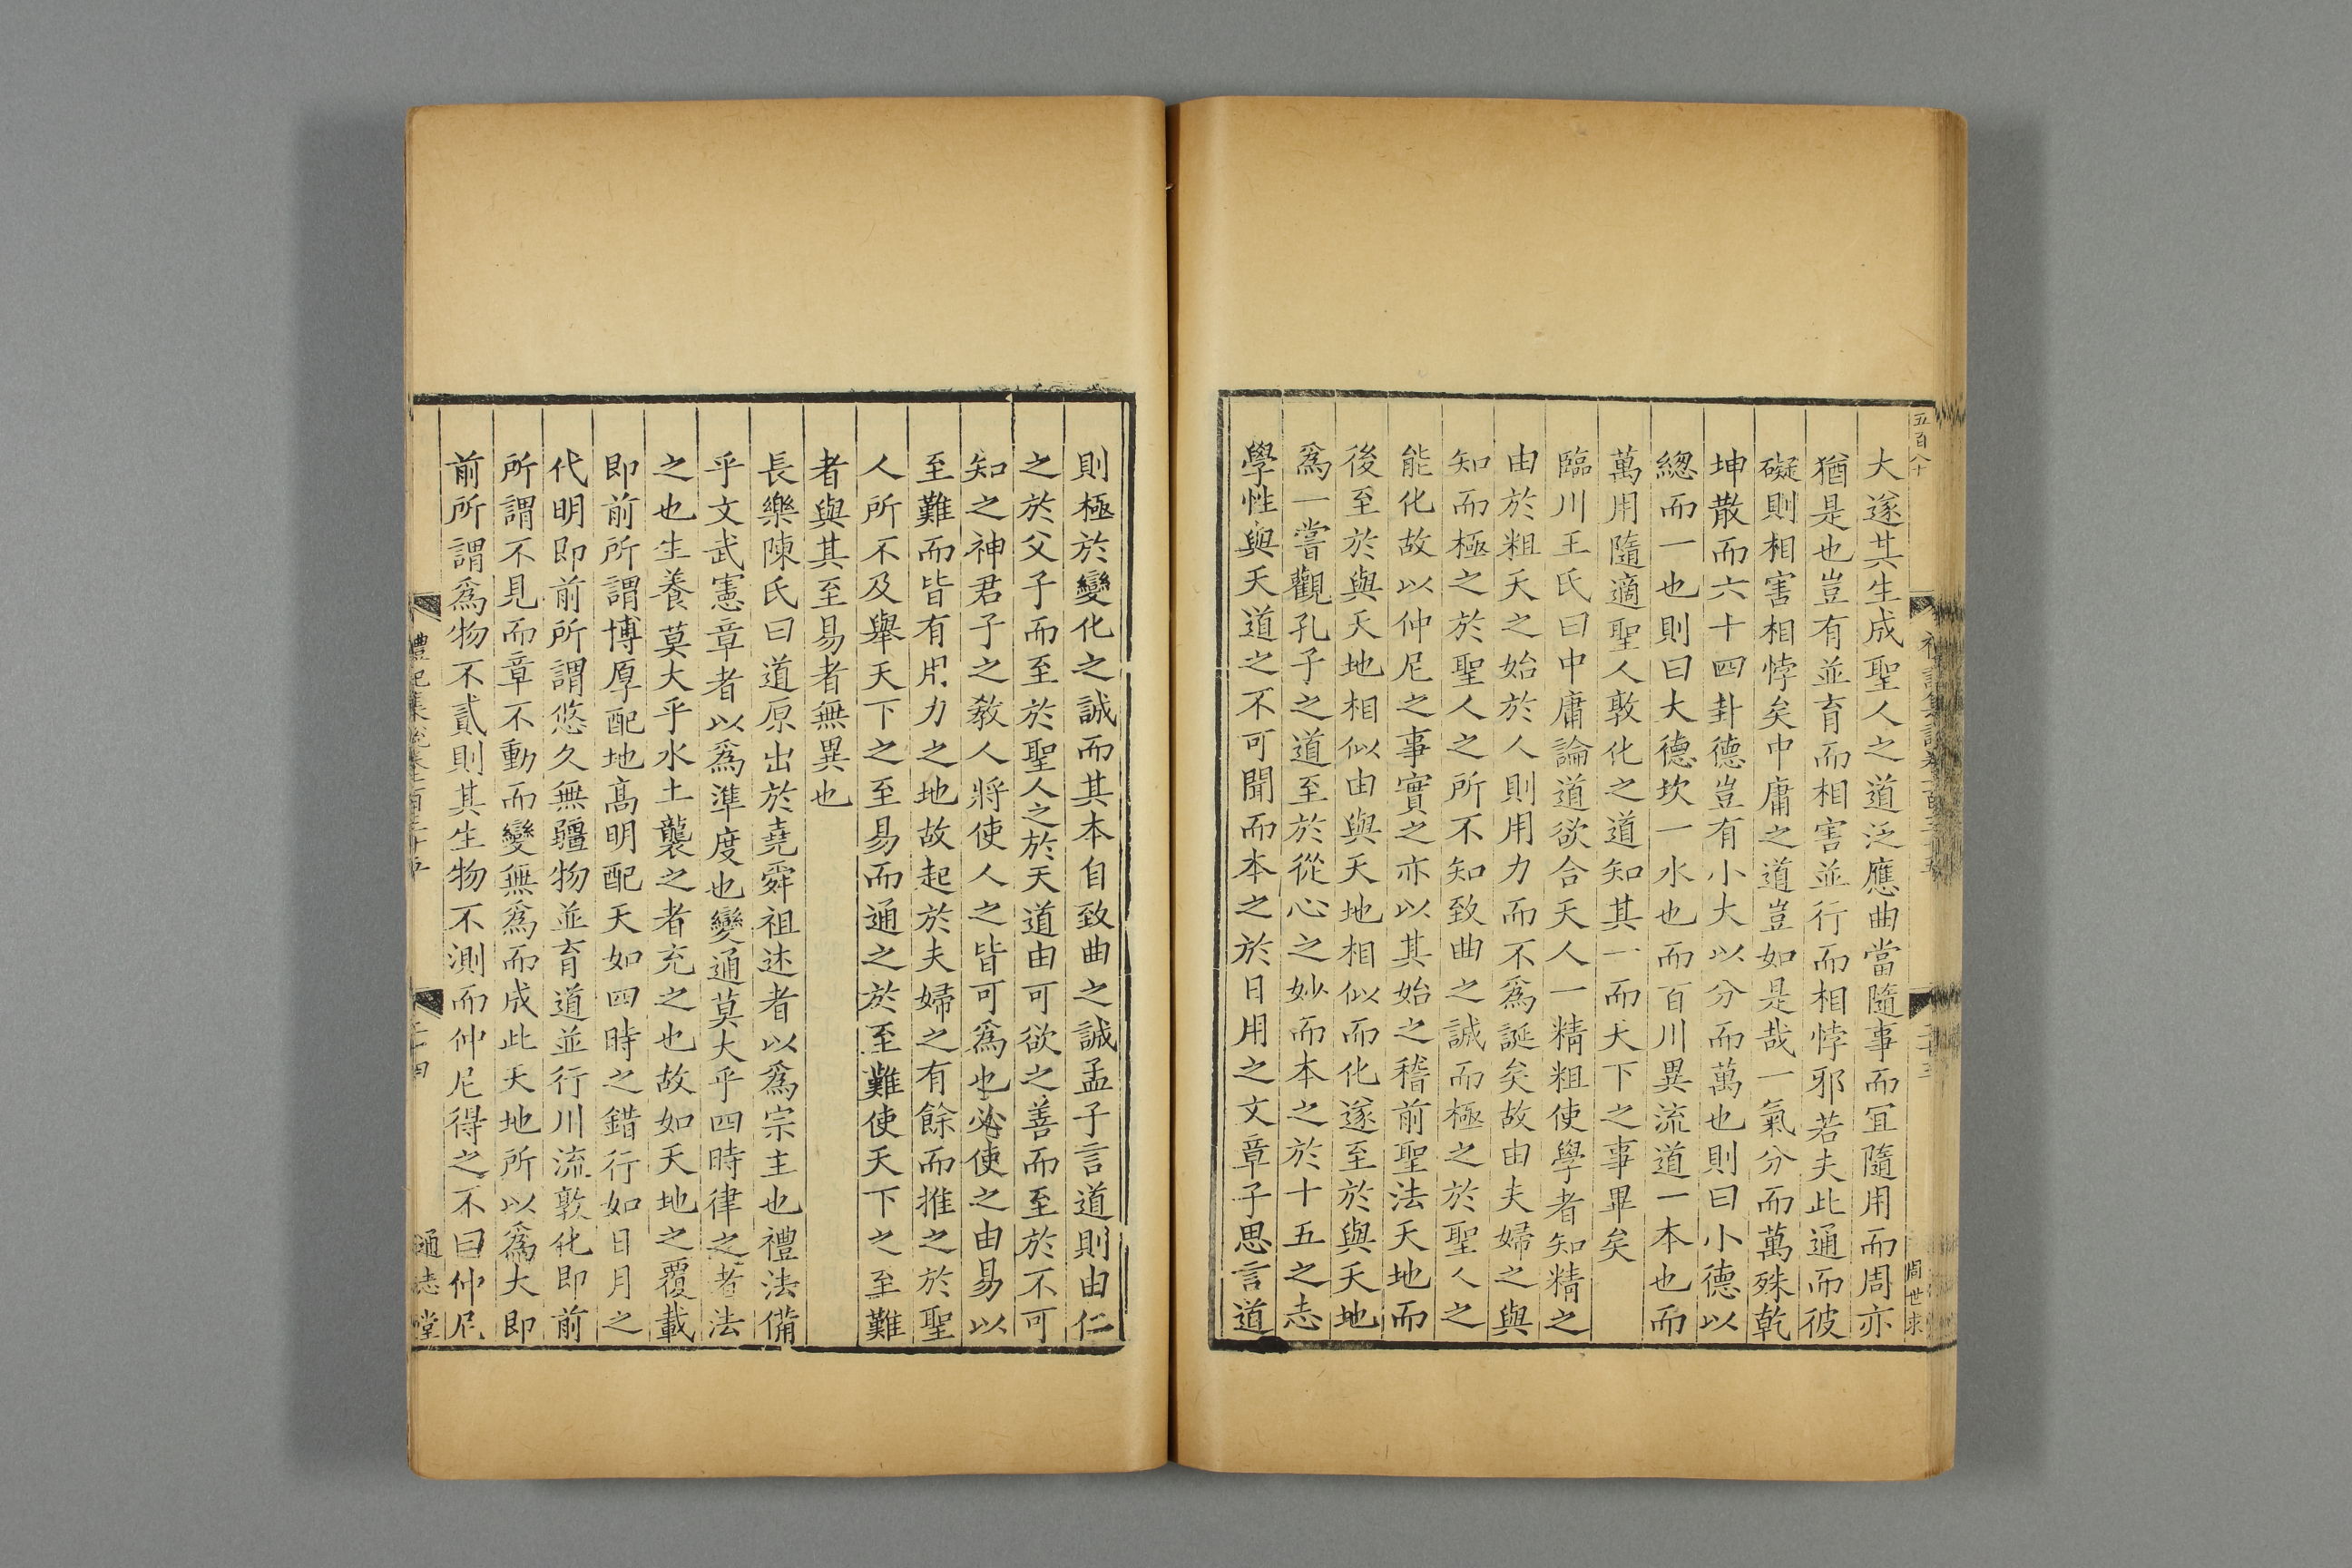 五百八十
周世求
大遂其生成聖人之道泛應曲當隨事而宜隨用而周亦
猶是也豈有並育而相害並行而相悖邪若夫此通而彼
礙則相害相悖矣中庸之道豈如是哉一氣分而萬殊乾
坤散而六十四卦德豈有小大以分而萬也則曰小德以
緫而一也則曰大德坎一水也而百川異流道一本也而
萬用隨適聖人敦化之道知其一而天下之事畢矣
臨川王氏曰中庸論道欲合天人一精粗使學者知精之
由於粗天之始於人則用力而不爲誕矣故由夫婦之與
知而極之於聖人之所不知致曲之誠而極之於聖人之
能化故以仲尼之事實之亦以其始之稽前聖法天地而
後至於與天地相似由與天地相似而化遂至於與天地
爲一嘗觀孔子之道至於從心之妙而本之於十五之志
學性與天道之不可聞而本之於日用之文章子思言道
則極於變化之誠而其本自致曲之誠孟子言道則由仁
之於父子而至於聖人之於天道由可欲之善而至於不可
知之神君子之教人將使人之皆可爲也必使之由易以
至難而皆有用力之地故起於夫婦之有餘而推之於聖
人所不及舉天下之至易而通之於至難使天下之至難
者與其至易者無異也
長樂陳氏曰道原出於堯舜祖述者以爲宗主也禮法備
乎文武憲章者以爲準度也變通莫大乎四時律之者法
之也生養莫大乎水土襲之者充之也故如天地之覆載
即前所謂博厚配地高明配天如四時之錯行如日月之
代明即前所謂悠久無疆物並育道並行川流敦化即前
所謂不見而章不動而變無爲而成此天地所以爲大即
前所謂爲物不貳則其生物不測而仲尼得之不曰仲尼
禮記集說卷
通志堂